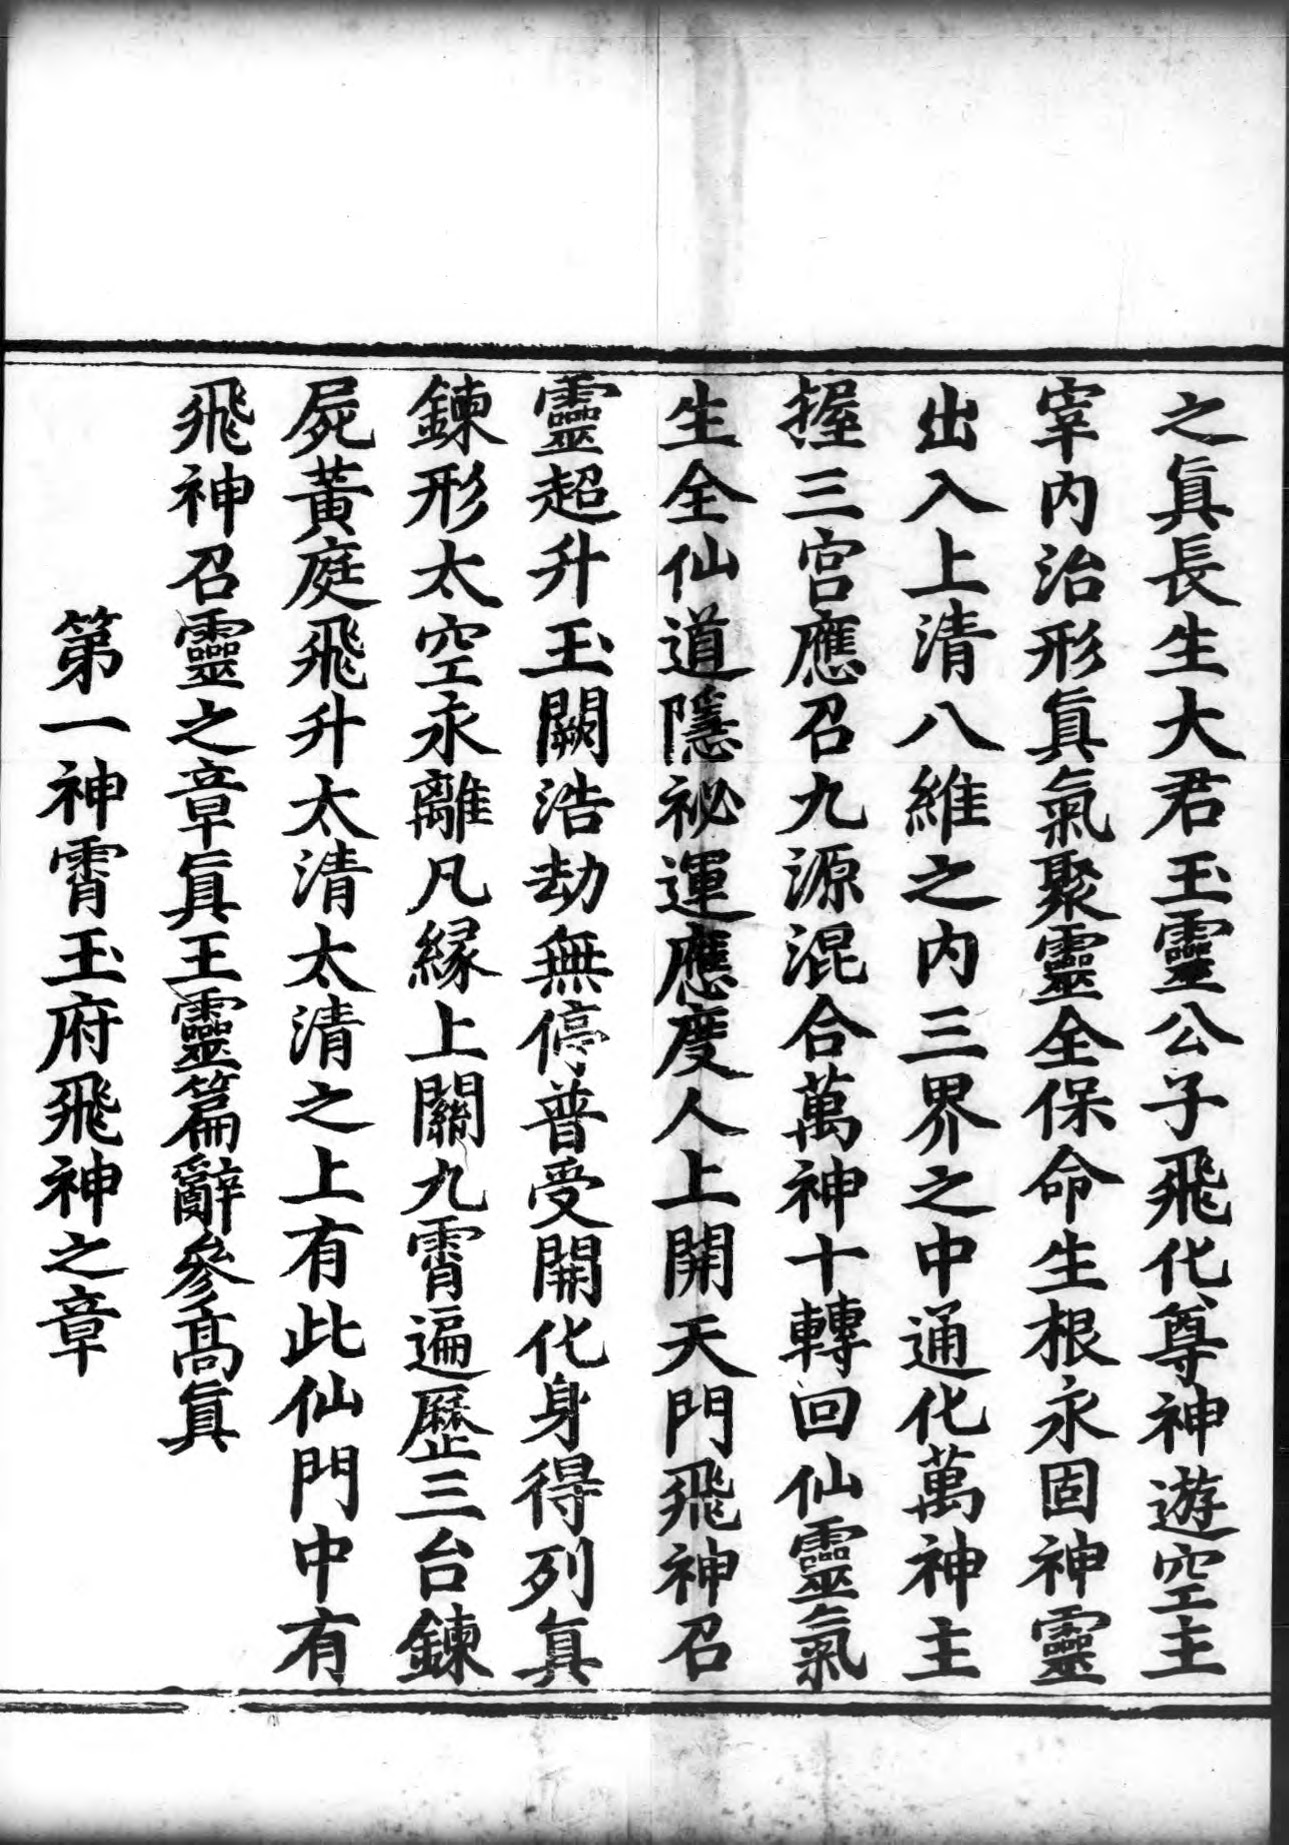 之眞長生大君玉靈公子飛化尊神遊空主
宰內治形眞氣聚靈全保命生根永固神靈
出入上清八維之內三界之中通化萬神主
握三宮應召九源混合萬神十轉回仙靈氣
生全仙道隱祕運應度人上開天門飛神召
靈超升玉闕浩劫無停普受開化身得列眞
鍊形太空永離凡緣上關九霄遍歷三台鍊
屍黃庭飛升太清太清之上有此仙門中有
飛神召靈之章眞王靈篇辭參高眞
第一神霄玉府飛神之章